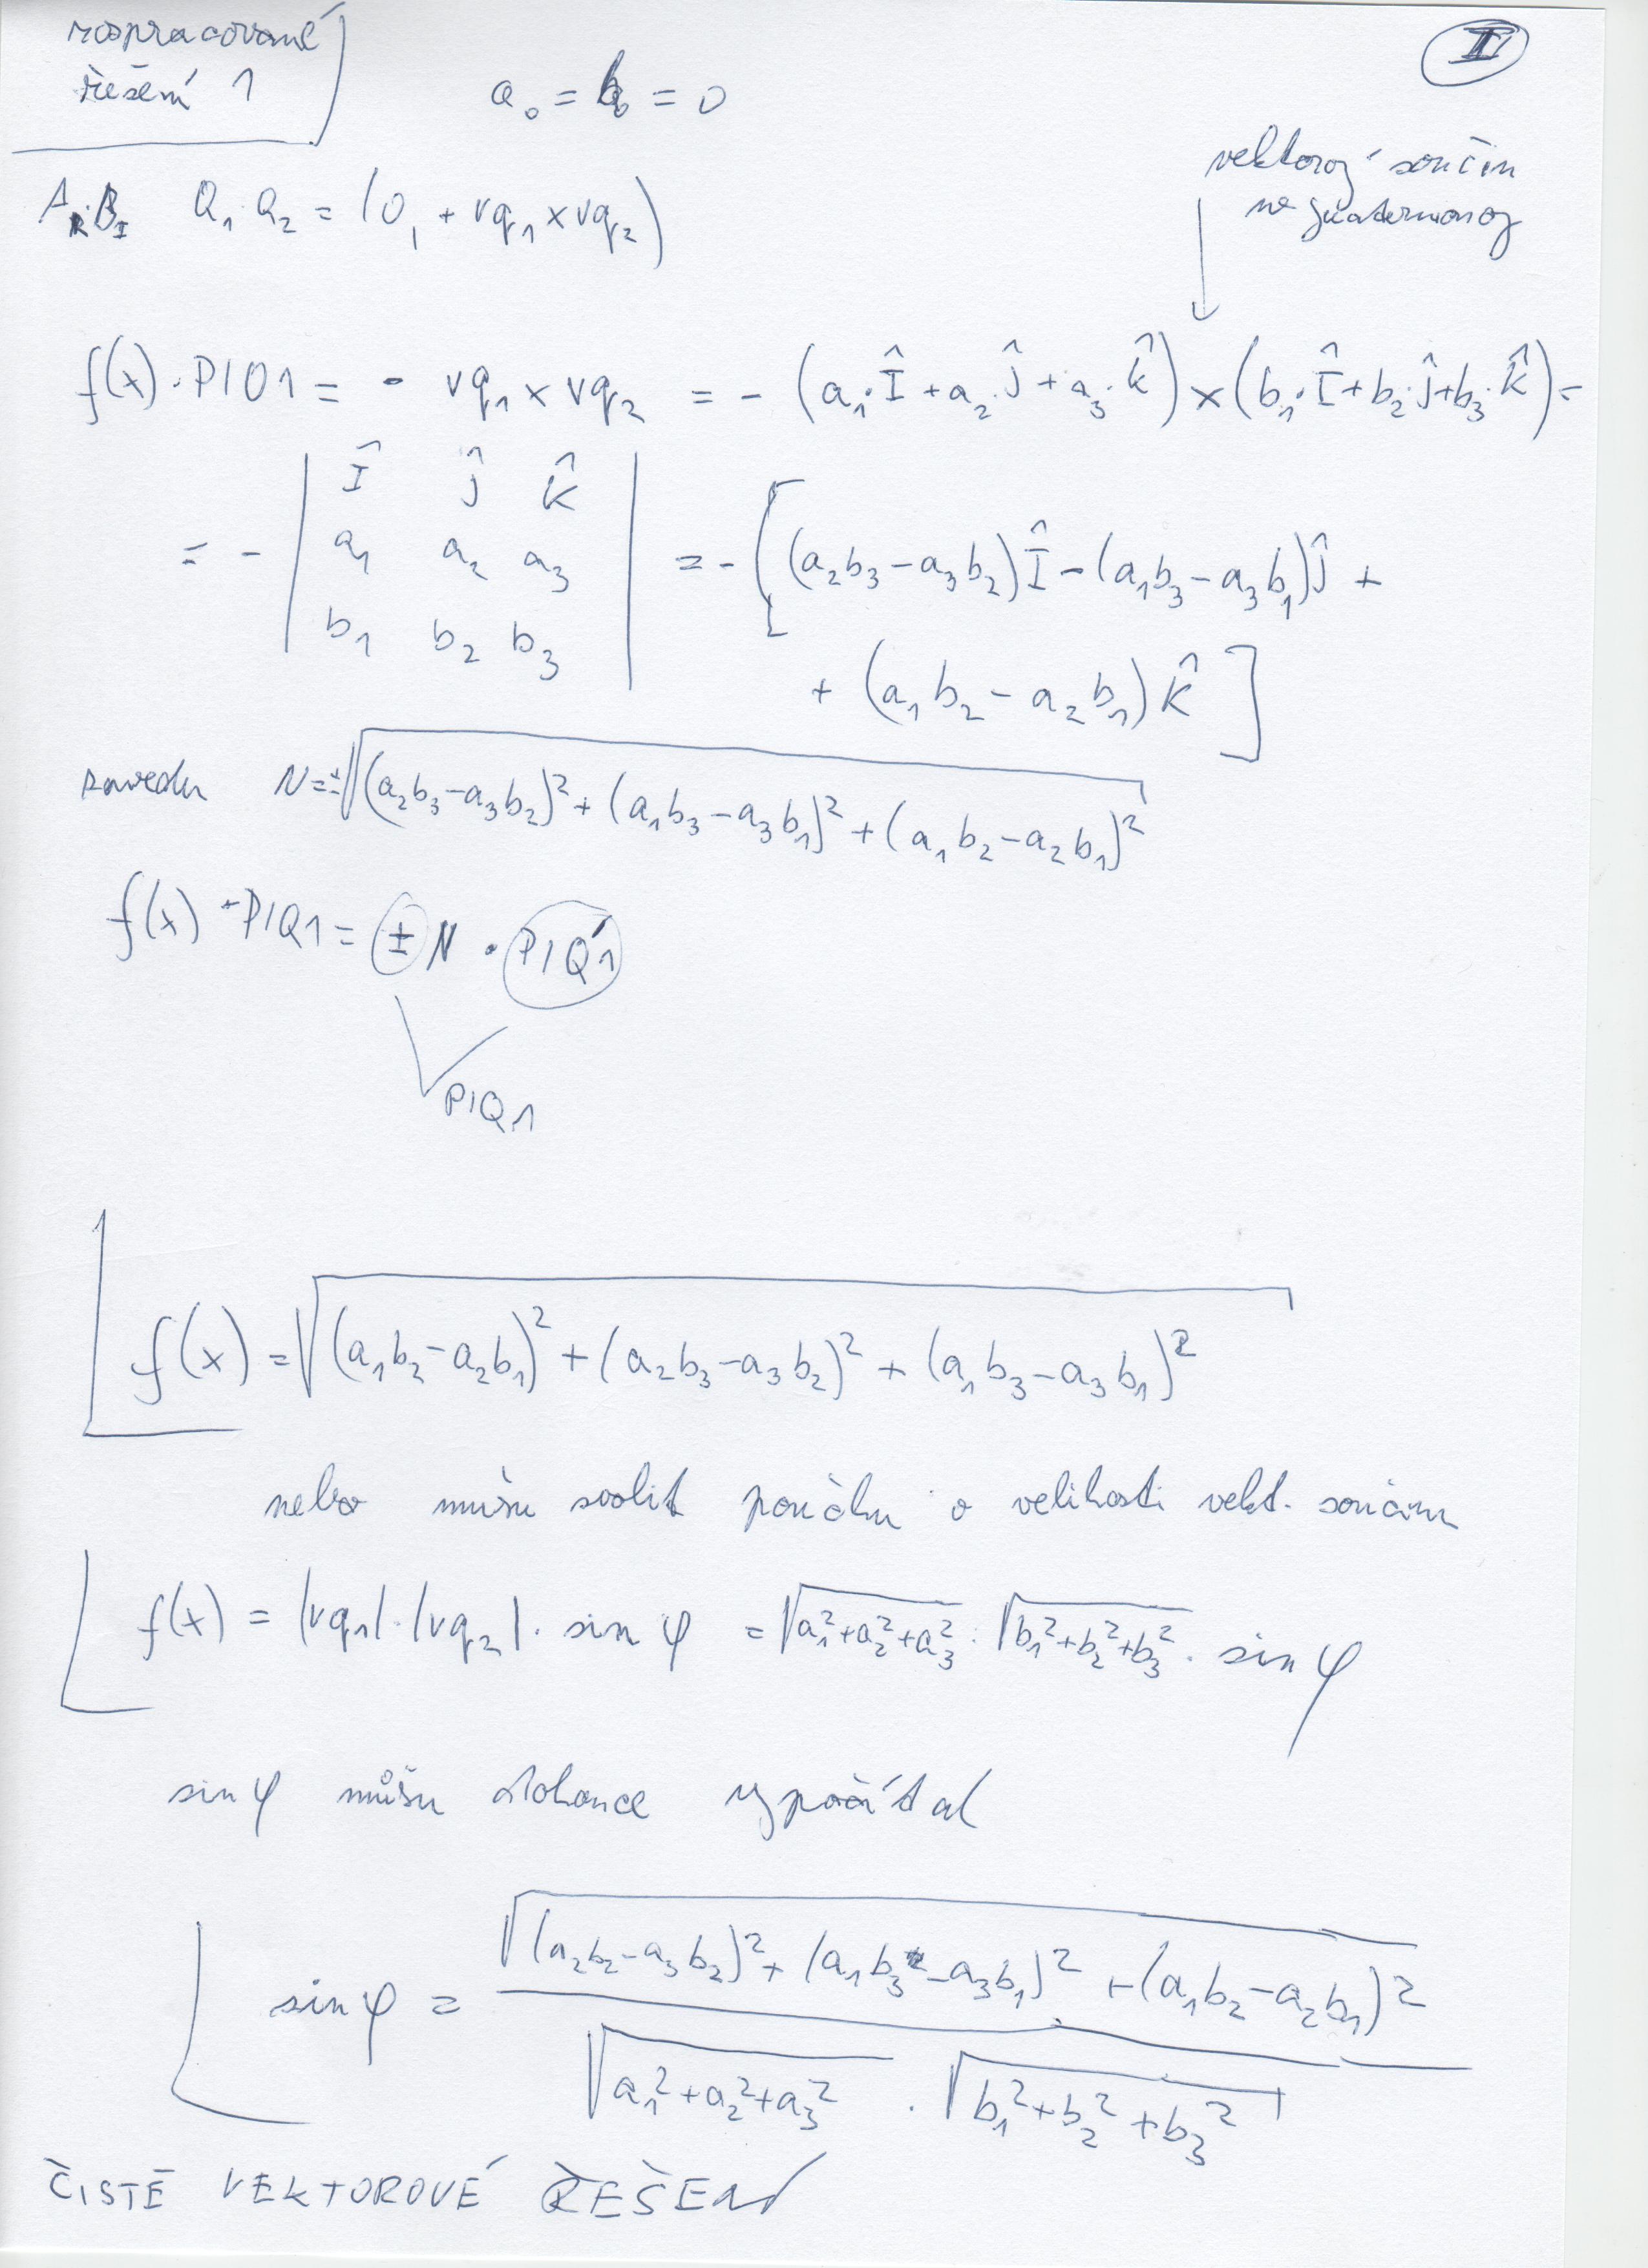 rozpracované
řešení 1
II
a₀ = b₀ = 0
vektorový součin
A_R·B_I Q₁·Q₂ = (0, + vq₁ × vq₂)
f(x)·PIQ1 = - vq₁ × vq₂ = - (a₁·Î + a₂·ĵ + a₃·k̂) × (b₁·Î + b₂·ĵ + b₃·k̂) =
Î ĵ k̂
= - | a₁ a₂ a₃ | = - [(a₂b₃ - a₃b₂)Î - (a₁b₃ - a₃b₁)ĵ +
b₁ b₂ b₃
+ (a₁b₂ - a₂b₁)k̂]
zavedu N = ±√((a₂b₃ - a₃b₂)² + (a₁b₃ - a₃b₁)² + (a₁b₂ - a₂b₁)²)
f(x)·PIQ1 = ± N · PIQ'1
PIQ1
f(x) = √((a₁b₂ - a₂b₁)² + (a₂b₃ - a₃b₂)² + (a₁b₃ - a₃b₁)²)
nebo můžu zvolit poučku o velikosti vekt. součinu
f(x) = |vq₁|·|vq₂|· sin φ = √(a₁² + a₂² + a₃²) · √(b₁² + b₂² + b₃²) · sin φ
sin φ můžu dokonce vypočítat
sin φ = √((a₂b₂ - a₃b₂)² + (a₁b₃ - a₃b₁)² + (a₁b₂ - a₂b₁)²)
√(a₁² + a₂² + a₃²) · √(b₁² + b₂² + b₃²)
ČISTĚ VEKTOROVÉ ŘEŠENÍ